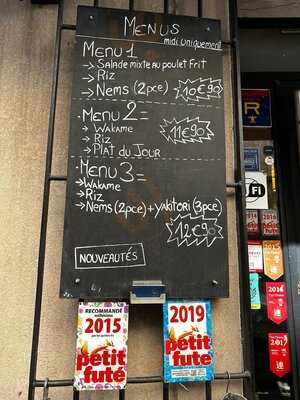 MENUS
midi uniquement
MENU 1
→ Salade mixte au poulet Frit
→ Riz
→ Nems (2pce)
10€90
· MENU 2 =
→ Wakame
→ Riz
→ Plat du Jour
11€90
· MENU 3 =
→ Wakame
→ Riz
→ Nems (2pce) + yakitori (3pce)
12€90
NOUVEAUTÉS
RECOMMANDÉ
2015
petit
futé
2019
petit
futé
Fi
2016
2017